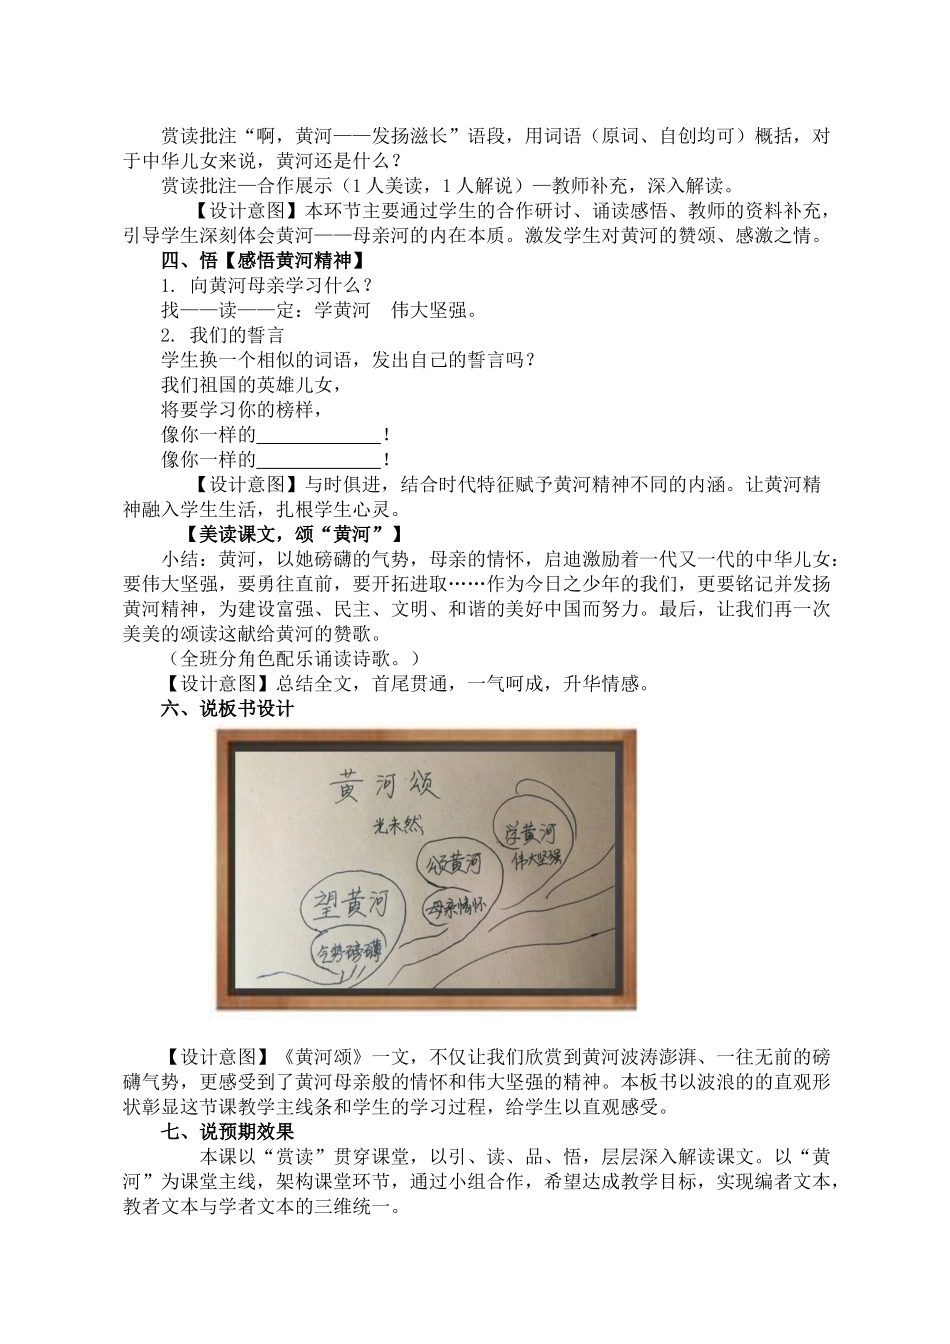 赏读批注“啊，黄河——发扬滋长”语段，用词语（原词、自创均可）概括，对
于中华儿女来说，黄河还是什么？
赏读批注—合作展示（1人美读，1人解说）—教师补充，深入解读。
【设计意图】本环节主要通过学生的合作研讨、诵读感悟、教师的资料补充，
引导学生深刻体会黄河——母亲河的内在本质。激发学生对黄河的赞颂、感激之情。
四、悟【感悟黄河精神】
1. 向黄河母亲学习什么？
找——读——定：学黄河　伟大坚强。
2. 我们的誓言
学生换一个相似的词语，发出自己的誓言吗？
我们祖国的英雄儿女，
将要学习你的榜样，
像你一样的_____________！
像你一样的_____________！
【设计意图】与时俱进，结合时代特征赋予黄河精神不同的内涵。让黄河精
神融入学生生活，扎根学生心灵。
【美读课文，颂“黄河”】
小结：黄河，以她磅礴的气势，母亲的情怀，启迪激励着一代又一代的中华儿女：
要伟大坚强，要勇往直前，要开拓进取……作为今日之少年的我们，更要铭记并发扬
黄河精神，为建设富强、民主、文明、和谐的美好中国而努力。最后，让我们再一次
美美的颂读这献给黄河的赞歌。
（全班分角色配乐诵读诗歌。）
【设计意图】总结全文，首尾贯通，一气呵成，升华情感。
六、说板书设计
黄河颂
光未然
学黄河
伟大坚强
颂黄河
母亲情怀
望黄河
气势磅礴
【设计意图】《黄河颂》一文，不仅让我们欣赏到黄河波涛澎湃、一往无前的磅
礴气势，更感受到了黄河母亲般的情怀和伟大坚强的精神。本板书以波浪的的直观形
状彰显这节课教学主线条和学生的学习过程，给学生以直观感受。
七、说预期效果
本课以“赏读”贯穿课堂，以引、读、品、悟，层层深入解读课文。以“黄
河”为课堂主线，架构课堂环节，通过小组合作，希望达成教学目标，实现编者文本，
教者文本与学者文本的三维统一。